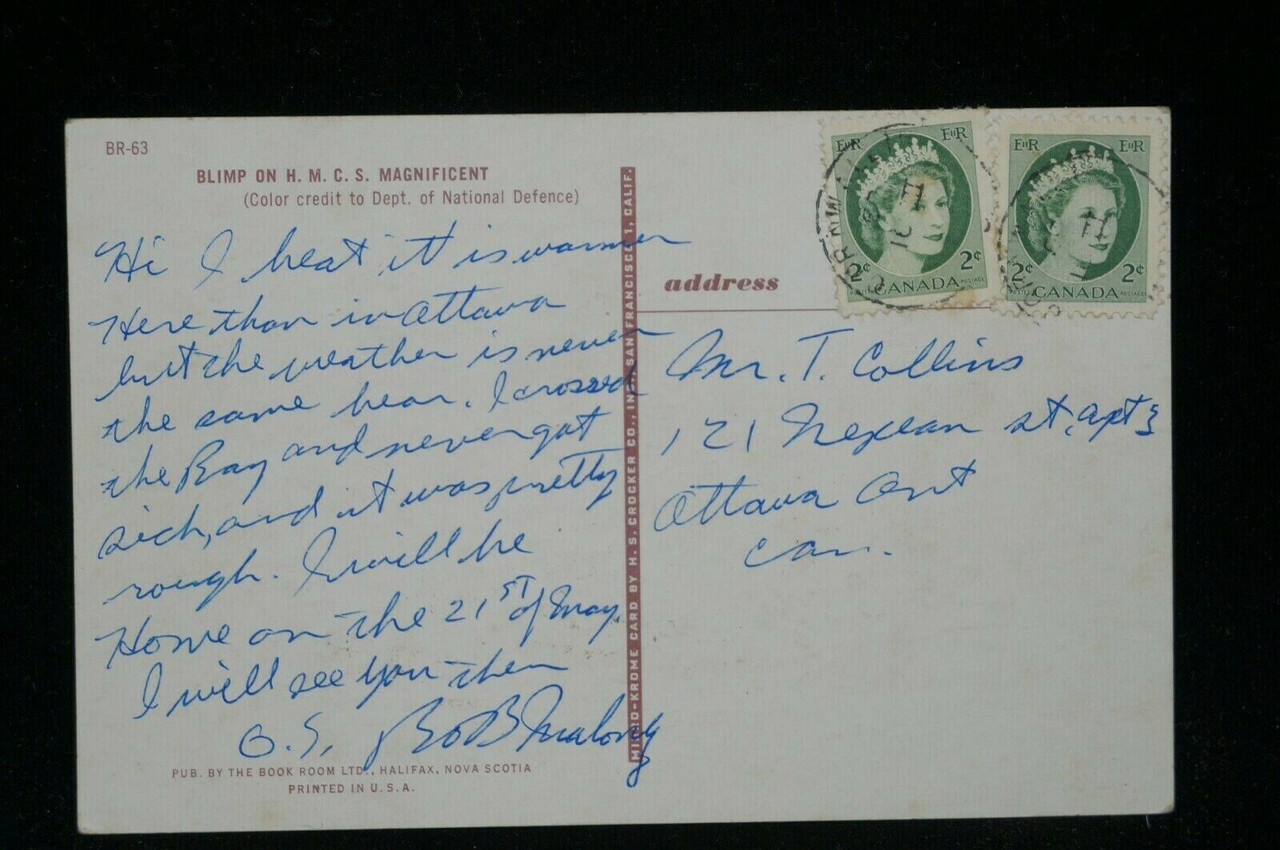 BR-63
BLIMP ON H. M. C. S. MAGNIFICENT
(Color credit to Dept. of National Defence)
Hi I heat it is warmer
Here than in Ottawa
but the weather is never
the same hear. I crossed
the Bay and never got
sick, and it was pretty
rough. I will be
Home on the 21ST of May.
I will see you then
O.S. BoB Malony
PUB. BY THE BOOK ROOM LTD., HALIFAX, NOVA SCOTIA
PRINTED IN U.S.A.
MICRO-KROME CARD BY H. S. CROCKER CO., INC., SAN FRANCISCO 1, CALIF.
EIIR EIIR
2¢ 2¢
CANADA
EIIR EIIR
2¢ 2¢
CANADA
address
Mr. T. Collins
121 st. apt 3
Ottawa Ont
Can.